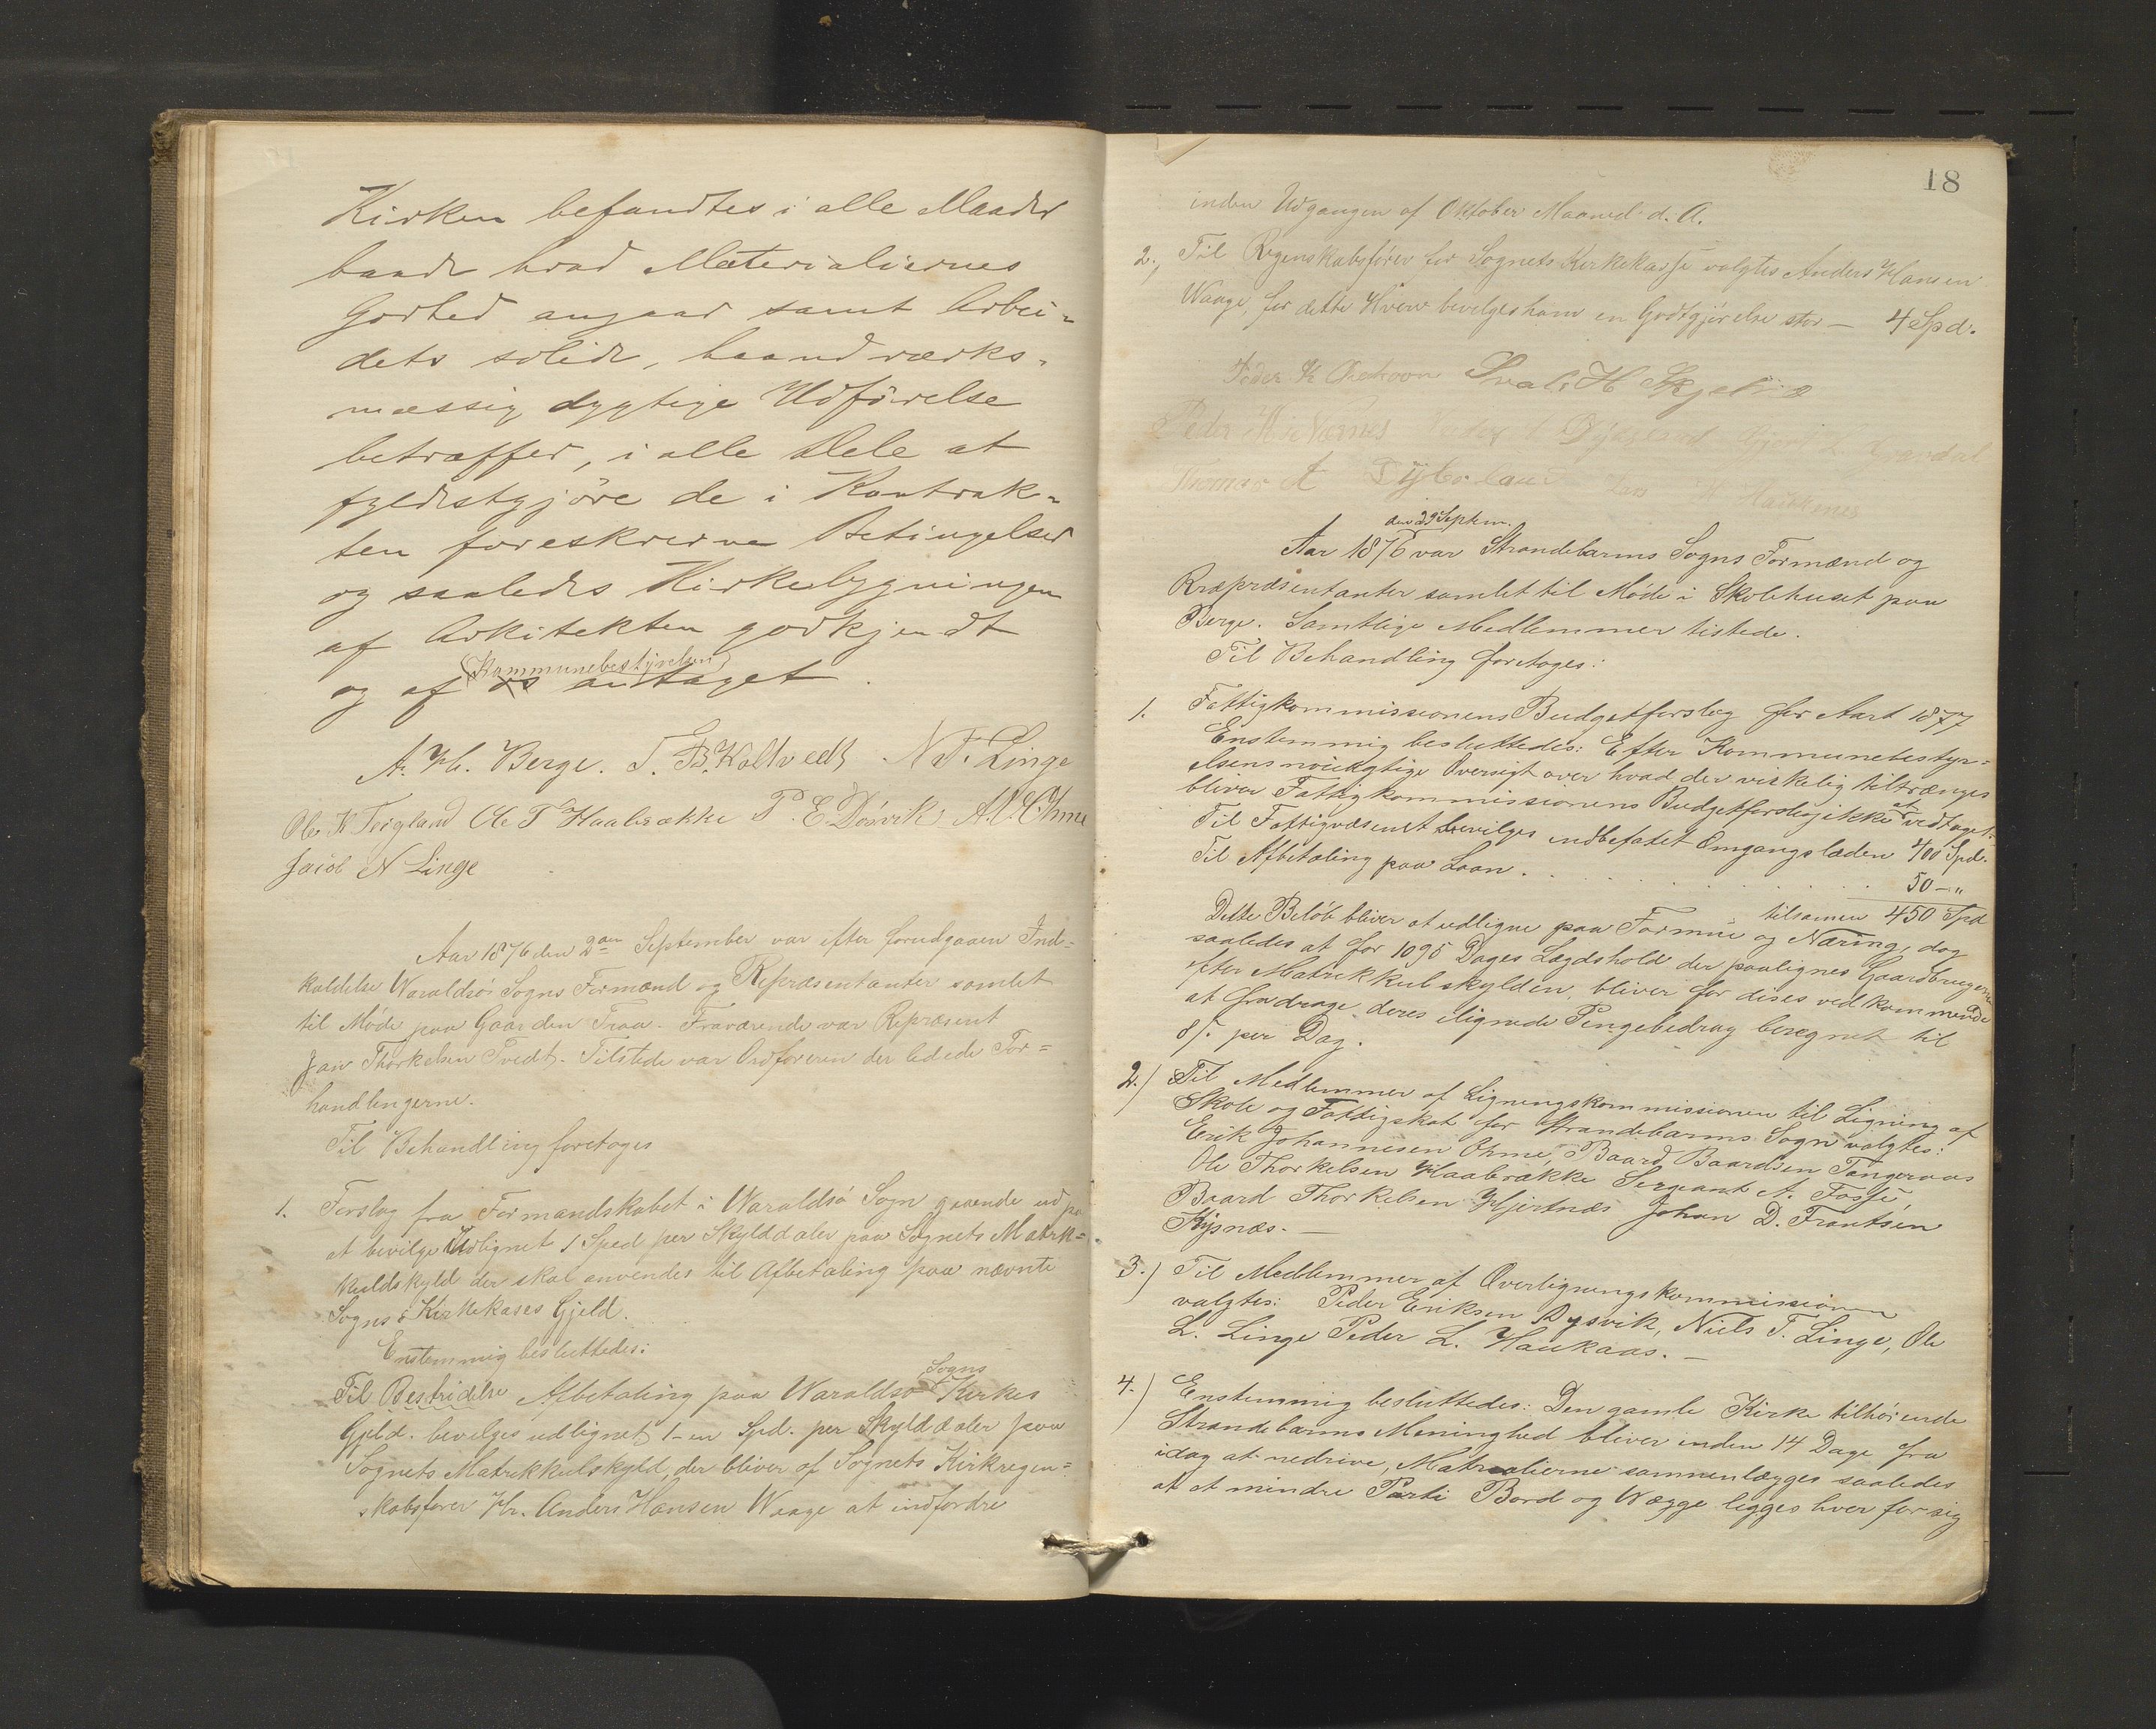 Kirken befandtes i alle Maader
baade hvad Materialiernes
Godhed angaar samt Arbei-
dets solide, haandværks-
mæssig dygtige Udförelse
betræffer, i alle Dele at
fyldestgjöre de i Kontrak-
ten foreskrevne Betingelser
og saaledes Kirkebygningen
af Arkitekten godkjendt
Kommunebestyrelsen
og af os antaget.
A. H. Berge. T. B. Koltvedt N T. Linge
Ole K Teigland Ole T Haabrække P. E. Dösvik A. O. Ohme
Jacob N Linge
Aar 1876 den 2den September var efter forudgaaen Ind=
kaldelse Waraldsö Sogns Formænd og Repræsentanter samlet
til Möde paa Gaarden Traa. Fraværende var Repræsent
Jan Thorkelsen Tvedt. Tilstede var Ordföreren der ledede For=
handlingerne.
Til Behandling foretoges
1. Forslag fra Formandskabet i Waraldsö Sogn gaaende ud pa
at bevilge Udlignet 1 Sped per Skylddaler paa Sognets Matrk=
kuldskyld der skal anvendes til Afbetaling paa nævnte
Sogns Kirkekases Gjeld.
Enstemmig besluttedes:
Sogns
Til Bestridelse Afbetaling paa Waraldsö Kirkes
Gjeld. bevilges udlignet 1-en Spd. per Skylddaler paa
Sognets Matrekkulskyld, der bliver af Sognets Kirkregen=
skabsförer Hr. Anders Hansen Waage at indfordre
18
inden Udgangen af Oktober Maaned d. A.
2., Til Regenskabsförer for Sognets Kirkekasse valgtes Anders Hansen
Waage, for dette Hverv bevilges ham en Godtgjörelse stor — 4 Spd.
Peder K Svale H Skjelnæ
Peder
Thomas A
den 29 Septem.
Aar 1876 var Strandebarms Sogns Formænd og
Rræpræsentanter samlet til Möde i Skolehuset paa
Berge. Samtlige Medlemmer tistede.
Til Behandling foretoges:
1. Fattigkommissionens Budgetforslag for Aaret 1877
Enstemmig besluttedes: Efter Kommunebestyr=
elsens nöiagtige Oversigt over hvad der virkelig tiltrænges
bliver Fattigkommissionens Budgetforslag ikke at vedtaget.
Til Fattigvæsenet bevilges indbefatet Omgangslæden 400 Spd.
Til Afbetaling paa Laan . . . . . . . 50 — "
tilsamen 450 Spd
Dette Belöb bliver at udligne paa Formue og Næring, dog
saaledes at for 1095 Dages Lægdshold der paalignes Gaardbrugerne
efter Matrikkulskylden, bliver for dises vedkommende
at fradrage deres ilignede Pengebedrag beregnet til
8 s. per Dag.
2.) Til Medlemmer af Ligningskommissionen til Ligning af
Skole og Fattigskat for Strandebarms Sogn valgtes:
Erik Johannesen Ohme, Baard Baardsen Tangeraas
Ole Thorkelsen Haabrække Sergeant A. Fosse,
Baard Thorkelsen Hjertnæs Johan D. Frantsen
Kysnæs. —
3.) Til Medlemmer af Overligningskommissionen
valgtes: Peder Eriksen Dysvik, Niels T. Linge, Ole
L. Linge Peder L. Haukaas. —
4.) Enstemmig besluttedes: Den gamle Kirke tilhörende
Strandebarms Meninghed bliver inden 14 Dage fra
idag at nedrive, Matrealierne sammenlægges saaledes
at et mindre Parti Bord og Vægge ligges hver for sig